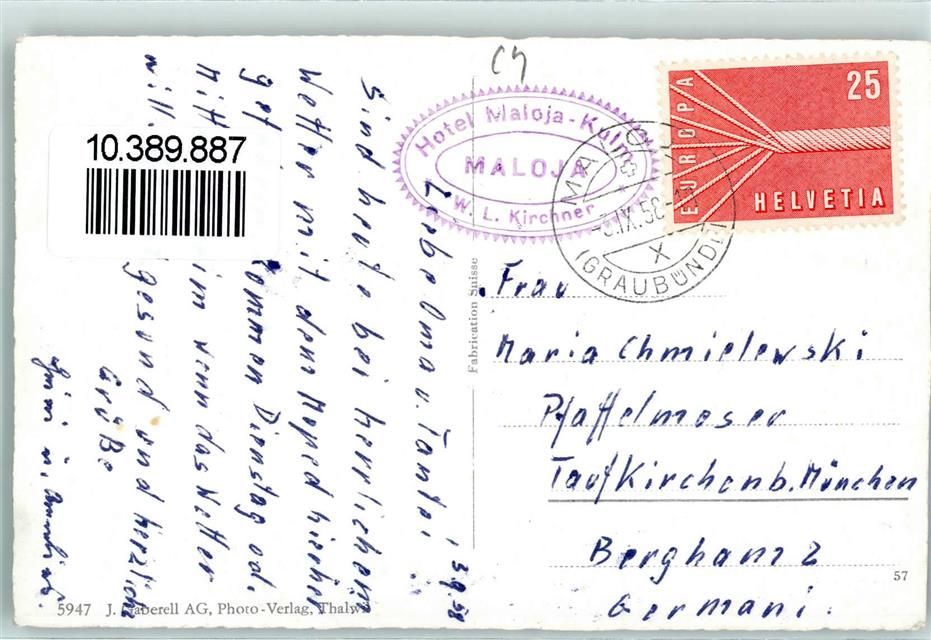 cy
10.389.887
Hotel Maloja-Kulm
MALOJA
W. L. Kirchner
EUROPA
25
HELVETIA
MALOJA
-3.IX.58-
X
(GRAUBÜNDEN)
3.9.58
Liebe Oma u. Tante!
Sind heute bei herrlichem
Wetter mit dem Moped hierher
gef
Kommen Dienstag od.
Mitt im wenn das Wetter
will.
gesund und herzliche
Grüße
Fabrication Suisse
Frau
Maria Chmielewski
Pfaffelmoser
Taufkirchen b. München
Bergham 2
Germani.
57
5947 J. Gaberell AG, Photo-Verlag, Thalwil